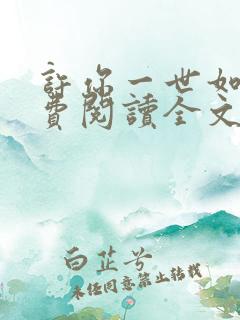 許你一世如
費閱讀全文
白芷兮
未经同意禁止转载